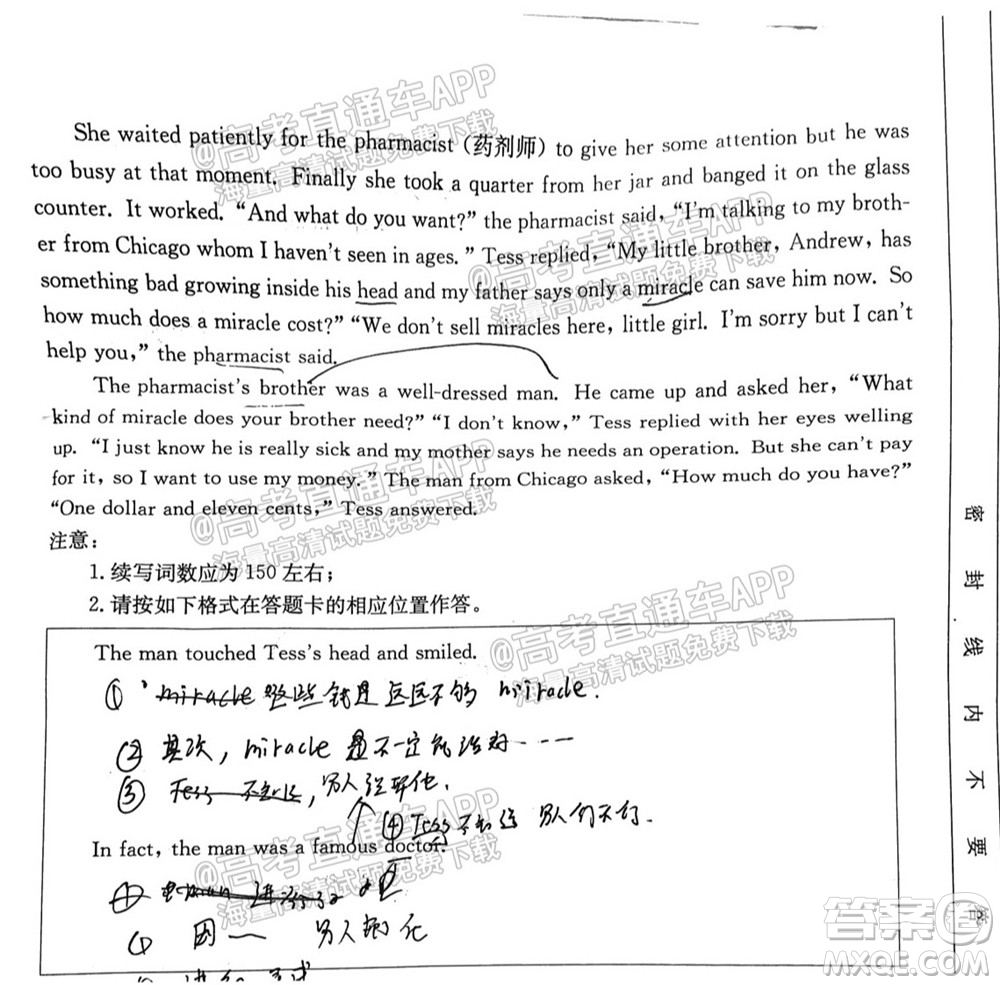 She waited patiently for the pharmacist（药剂师）to give her some attention but he was
too busy at that moment. Finally she took a quarter from her jar and banged it on the glass
counter. It worked. “And what do you want?” the pharmacist said, “I'm talking to my broth-
er from Chicago whom I haven't seen in ages.” Tess replied, “My little brother, Andrew, has
something bad growing inside his head and my father says only a miracle can save him now. So
how much does a miracle cost?” “We don't sell miracles here, little girl. I'm sorry but I can't
help you,” the pharmacist said.
The pharmacist's brother was a well-dressed man. He came up and asked her, “What
kind of miracle does your brother need?” “I don't know,” Tess replied with her eyes welling
up. “I just know he is really sick and my mother says he needs an operation. But she can't pay
for it, so I want to use my money.” The man from Chicago asked, “How much do you have?”
“One dollar and eleven cents,” Tess answered.
注意：
1. 续写词数应为 150 左右；
2. 请按如下格式在答题卡的相应位置作答。
The man touched Tess's head and smiled.
① miracle 这些钱是远远不够 miracle.
② 其次, miracle 是不一定能治好----
③ Tess
④ Tess
In fact, the man was a famous doctor.
① 男人
密封线内不要答
@高考直通车APP
海量高清试题免费下载
@高考直通车APP
海量高清试题免费下载
@高考直通车APP
海量高清试题免费下载
@高考直通车APP
海量高清试题免费下载
@高考直通车APP
海量高清试题免费下载
@高考直通车APP
海量高清试题免费下载
答案圈
MXQE.COM